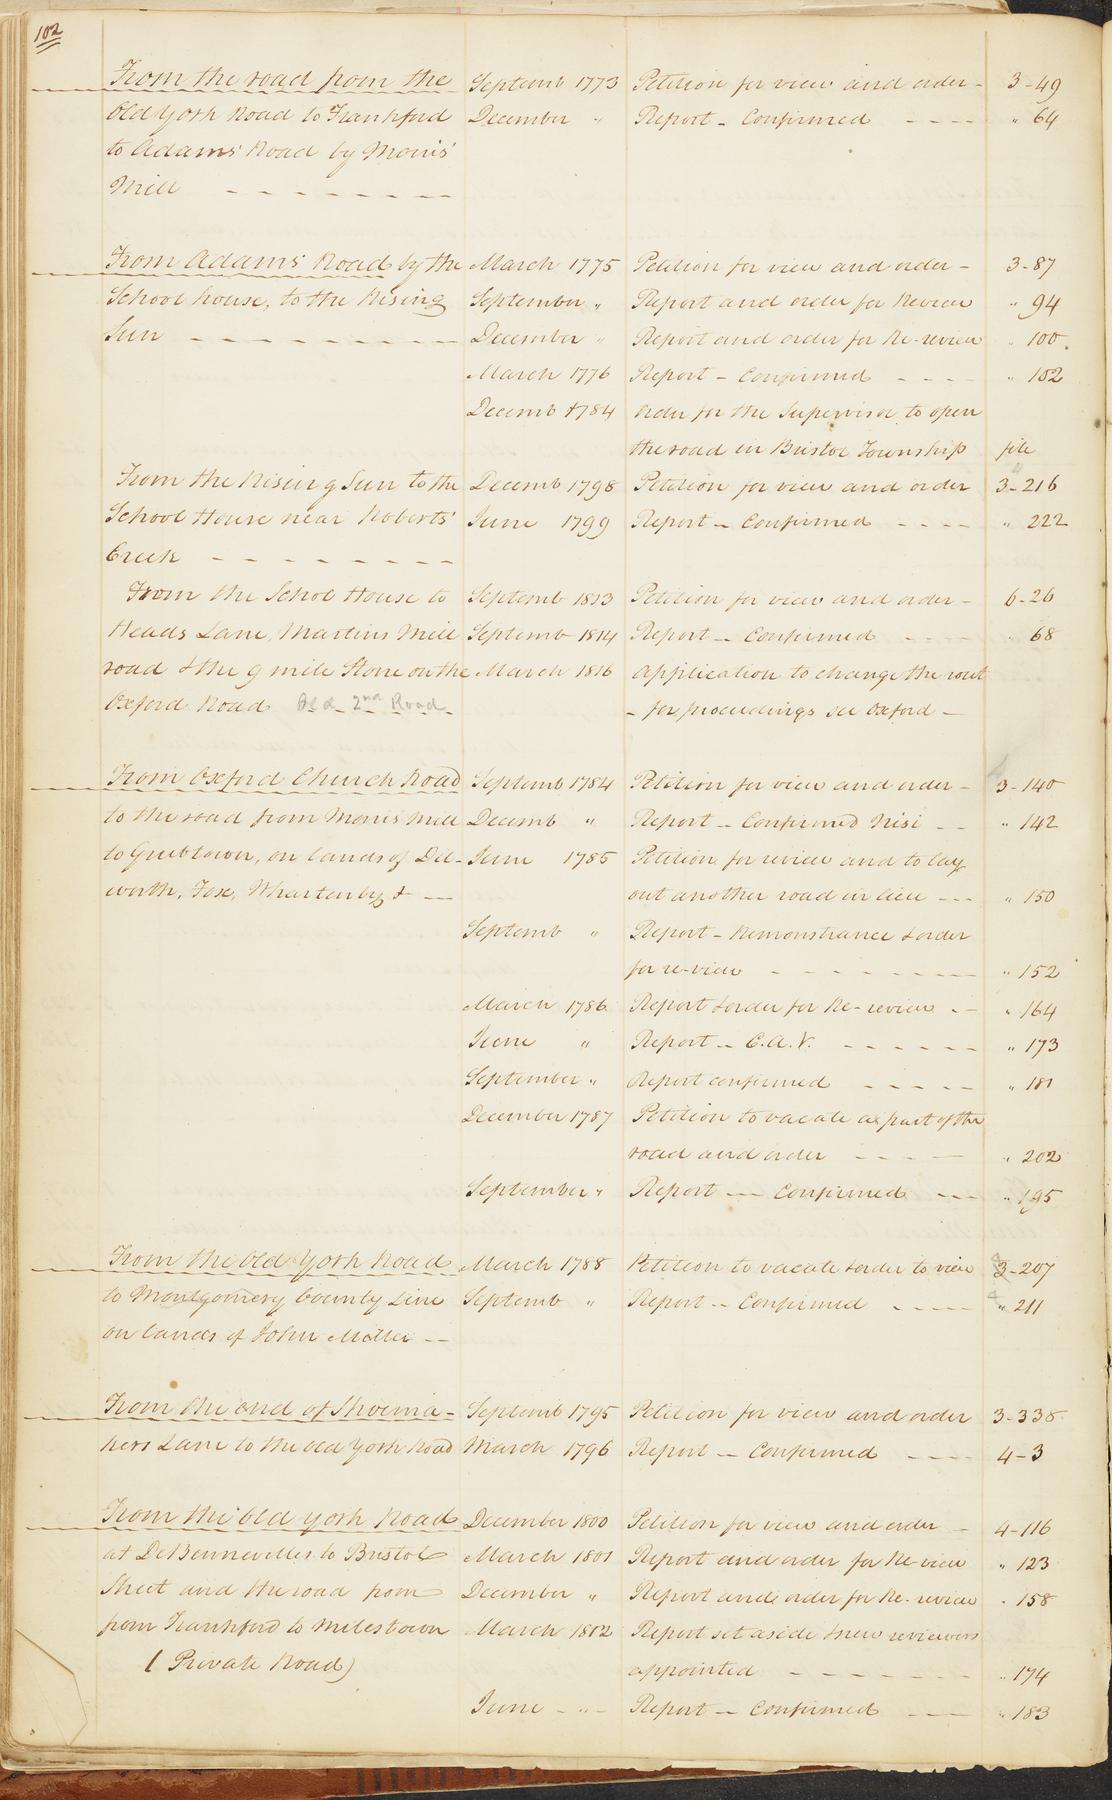 102
From the road from the Septemb 1773 Petition for view and order - 3-49
Old York Road to Frankford December " Report - Confirmed - - - - " 64
to Adams' Road by Morris'
Mill - - - - - - - -
From Adams' Road by the March 1775 Petition for view and order - 3-87
School house, to the Rising September " Report and order for Review " 94
Sun - - - - - - - - - - December " Report and order for Re-review " 100.
March 1776 Report - Confirmed - - - - " 102
Decemb 1784 order for the Supervisor to open
the road in Bristol Township file
From the Rising Sun to the Decemb 1798 Petition for view and order 3-216
School House near Roberts' June 1799 Report - Confirmed - - - - " 222
Creek - - - - - - - - -
From the Schol House to Septemb 1813 Petition for view and order - 6-26
Heads Lane, Martins Mill Septemb 1814 Report - Confirmed - - - - " 68
road & the 9 mile Stone on the March 1816 application to change the rout
Oxford Road Old 2nd Road - for proceedings see Oxford -
From Oxford Church Road Septemb 1784 Petition for view and order - 3-140
to the road from Morris mill Decemb " Report - Confirmed Nisi - - " 142
to Grubtown, on lands of Dil- June 1785 Petition for review and to lay
worth, Fox, Whartenby & - out another road in lieu - - - " 150
Septemb " Report - Remonstrance & order
for re-view - - - - - - - - " 152
March 1786 Report & order for Re-review - - " 164
June " Report - C.A.V. - - - - - - " 173
September " Report confirmed - - - - - " 181
December 1787 Petition to vacate a part of the
road and order - - - - " 202
September " Report - Confirmed - - " 195
From the Old York Road March 1788 Petition to vacate & order to view 3-207
to Montgomery County Line Septemb " Report - Confirmed - - - - " 211
on lands of John Miller - -
From the end of Shoema- Septemb 1795 Petition for view and order 3-338
kers Lane to the old York Road March 1796 Report - Confirmed - - - - 4-3
From the old York Road December 1800 Petition for view and order - 4-116
at DeBennevilles to Bristol March 1801 Report and order for Re-view " 123
Street and the road from December " Report and order for Re-review " 158
from Frankford to Milestown March 1802 Report set aside & new reviewers
( Private Road) appointed - - - - - - - " 174
June - " - Report - Confirmed - - - " 183